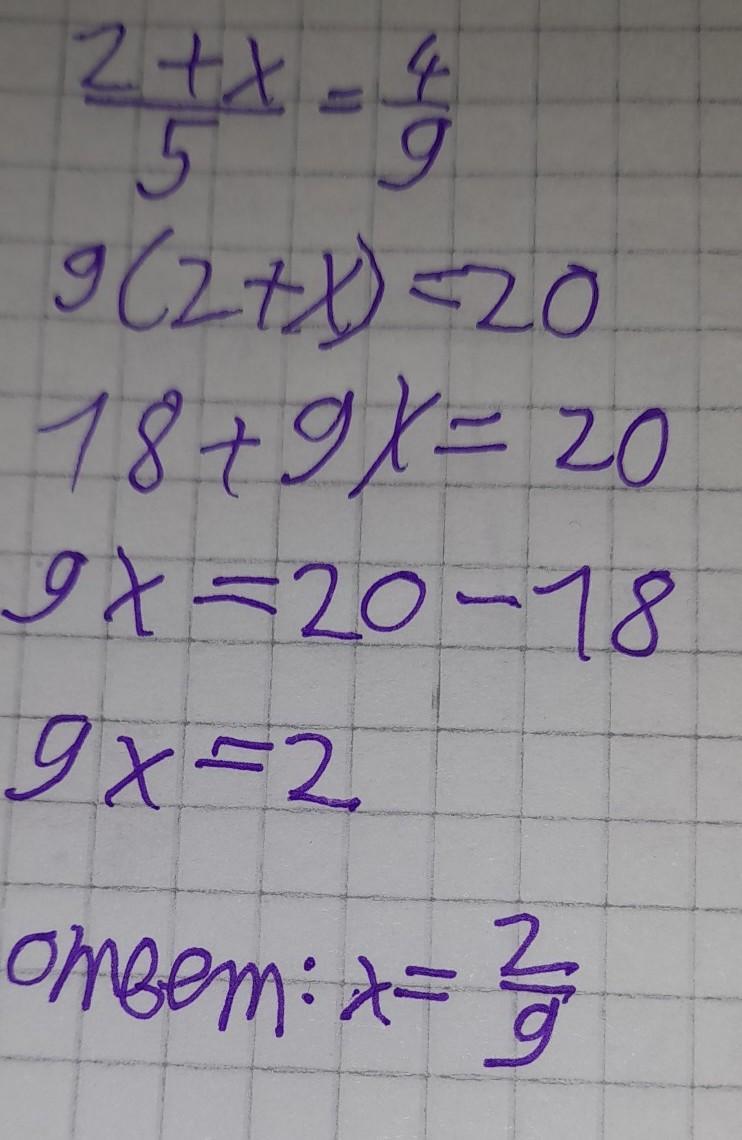 2+x/5 = 4/9
9(2+x)=20
18+9x=20
9x=20-18
9x=2
ответ: x=2/9